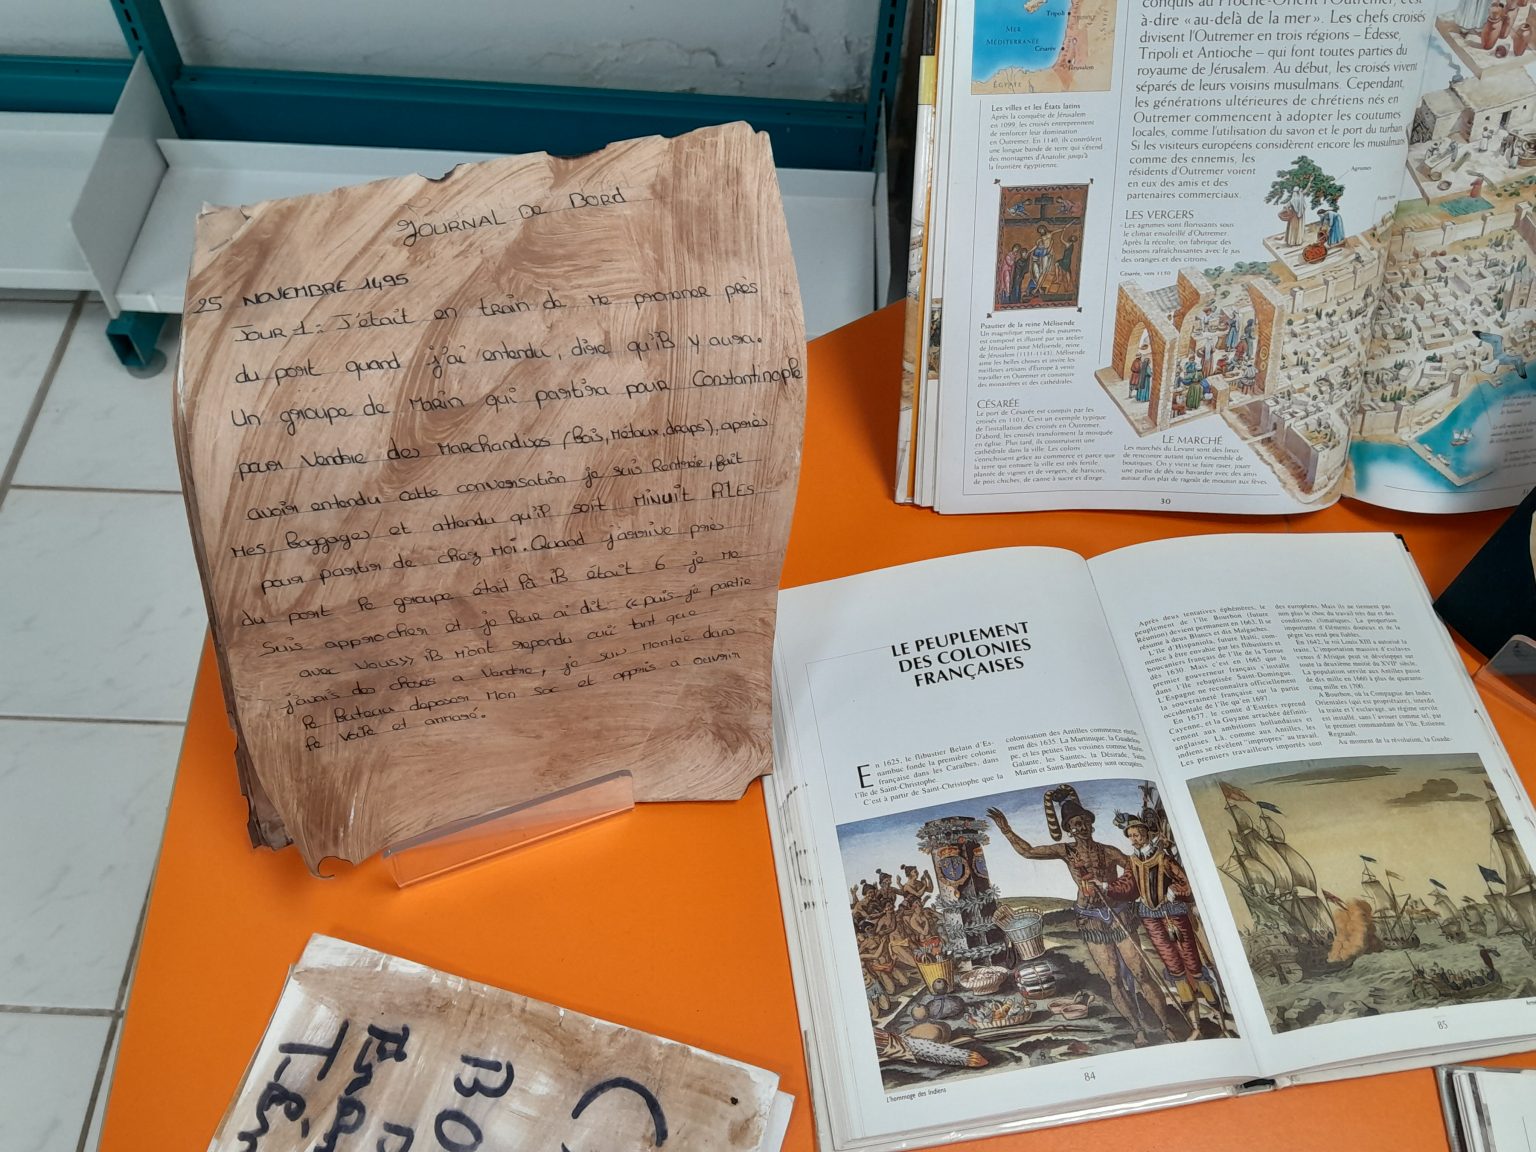 JOURNAL DE BORD
25 NOVEMBRE 1495
JOUR 1 : J'était en train de me promener près
du port quand j'ai entendu, dire qu'il y aura.
Un groupe de Marin qui partira pour Constantinople
pour vendre des Marchandises (bois, métaux, draps), après
avoir entendu cette conversation je suis Rentrée, fait
mes baggages et attendu qu'il soit MINUIT PILES
pour partir de chez moi. Quand j'arrive près
du port le groupe était là il était 6 je me
suis approcher et je leur ai dit « puis-je partir
avec vous» il m'ont repondu oui tant que
j'avais des choses a vendre, je suis montée dans
le bateau deposer mon sac et appris a ouvrir
la voile et
BO
MER
MÉDITERRANÉE
Tripoli
Césarée
Jérusalem
ÉGYPTE
SYRIE
Les villes et les États latins
Après la conquête de Jérusalem
en 1099, les croisés entreprennent
de renforcer leur domination
en Outremer. En 1140, ils contrôlent
une longue bande de terre qui s'étend
des montagnes d'Anatolie jusqu'à
la frontière égyptienne.
Psautier de la reine Mélisende
Un magnifique recueil des psaumes
est composé et illustré par un atelier
de Jérusalem pour Mélisende, reine
de Jérusalem (1131-1143). Mélisende
aime les belles choses et invite les
meilleurs artisans d'Europe à venir
travailler en Outremer et construire
des monastères et des cathédrales.
CÉSARÉE
Le port de Césarée est conquis par les
croisés en 1101. C'est un exemple typique
de l'installation des croisés en Outremer.
D'abord, les croisés transforment la mosquée
en église. Plus tard, ils construisent une
cathédrale dans la ville. Les colons
s'enrichissent grâce au commerce et parce que
la terre qui entoure la ville est très fertile,
plantée de vignes et de vergers, de haricots,
de pois chiches, de canne à sucre et d'orge.
conquis au Proche-Orient l'Outremer, c'est
à-dire « au-delà de la mer ». Les chefs croisés
divisent l'Outremer en trois régions – Édesse,
Tripoli et Antioche – qui font toutes parties du
royaume de Jérusalem. Au début, les croisés vivent
séparés de leurs voisins musulmans. Cependant,
les générations ultérieures de chrétiens nés en
Outremer commencent à adopter les coutumes
locales, comme l'utilisation du savon et le port du turban.
Si les visiteurs européens considèrent encore les musulmans
comme des ennemis, les
résidents d'Outremer voient
en eux des amis et des
partenaires commerciaux.
LES VERGERS
Les agrumes sont florissants sous
le climat ensoleillé d'Outremer.
Après la récolte, on fabrique des
boissons rafraîchissantes avec le jus
des oranges et des citrons.
Césarée, vers 1150
Agrumes
LE MARCHÉ
Les marchés du Levant sont des lieux
de rencontre autant qu'un ensemble de
boutiques. On y vient se faire raser, jouer
une partie de dés ou bavarder avec des amis
autour d'un plat de ragoût de mouton aux fèves.
30
LE PEUPLEMENT
DES COLONIES
FRANÇAISES
En 1625, le flibustier Belain d'Es-
nambuc fonde la première colonie
française dans les Caraïbes, dans
l'île de Saint-Christophe.
C'est à partir de Saint-Christophe que la
colonisation des Antilles commence réelle-
ment dès 1635. La Martinique, la Guadelou-
pe, et les petites îles voisines comme Marie-
Galante, les Saintes, la Désirade, Saint-
Martin et Saint-Barthélemy sont occupées.
L'hommage des Indiens
84
Après deux tentatives éphémères, le
peuplement de l'île Bourbon (future
Réunion) devient permanent en 1663. Il se
résume à deux Blancs et dix Malgaches.
L'île d'Hispaniola, future Haïti, com-
mence à être envahie par les flibustiers et
boucaniers français de l'île de la Tortue
dès 1630. Mais c'est en 1665 que le
premier gouverneur français s'installe
dans l'île rebaptisée Saint-Domingue.
L'Espagne ne reconnaîtra officiellement
la souveraineté française sur la partie
occidentale de l'île qu'en 1697.
En 1677, le comte d'Estrées reprend
Cayenne, et la Guyane arrachée définiti-
vement aux ambitions hollandaises et
anglaises. Là, comme aux Antilles, les
indiens se révèlent "impropres" au travail.
Les premiers travailleurs importés sont
des européens. Mais ils ne tiennent pas
non plus le choc du travail très dur et des
conditions climatiques. La proportion
importante d'éléments douteux et de la
pègre les rend peu fiables.
En 1642, le roi Louis XIII a autorisé la
traite. L'importation massive d'esclaves
venus d'Afrique peut se développer sur
toute la deuxième moitié du XVIIe siècle.
La population servile aux Antilles passe
de dix mille en 1660 à plus de quarante-
cinq mille en 1700.
A Bourbon, où la Compagnie des Indes
Orientales (qui est propriétaire), interdit
la traite et l'esclavage, un régime servile
est installé, sans l'avouer comme tel, par
le premier commandant de l'île, Estienne
Regnault.
Au moment de la révolution, la Guade-
85